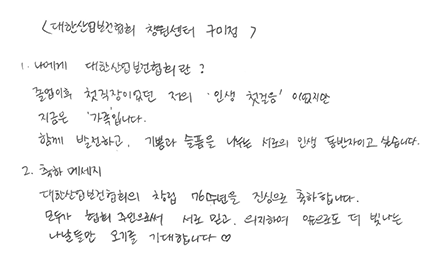 < 대한산업보건협회 창원센터 구미정 >
1. 나에게 대한산업보건협회란?
졸업이후 첫직장이었던 저의 '인생 첫걸음' 이었지만
지금은 '가족'입니다.
함께 발전하고, 기쁨과 슬픔을 나누는 서로의 인생 동반자이고 싶습니다.
2. 축하 메세지
대한산업보건협회의 창립 60주년을 진심으로 축하합니다.
모두가 협회 주인으로써 서로 믿고, 의지하며 앞으로도 더 빛나는
나날들만 오기를 기대합니다 ♡